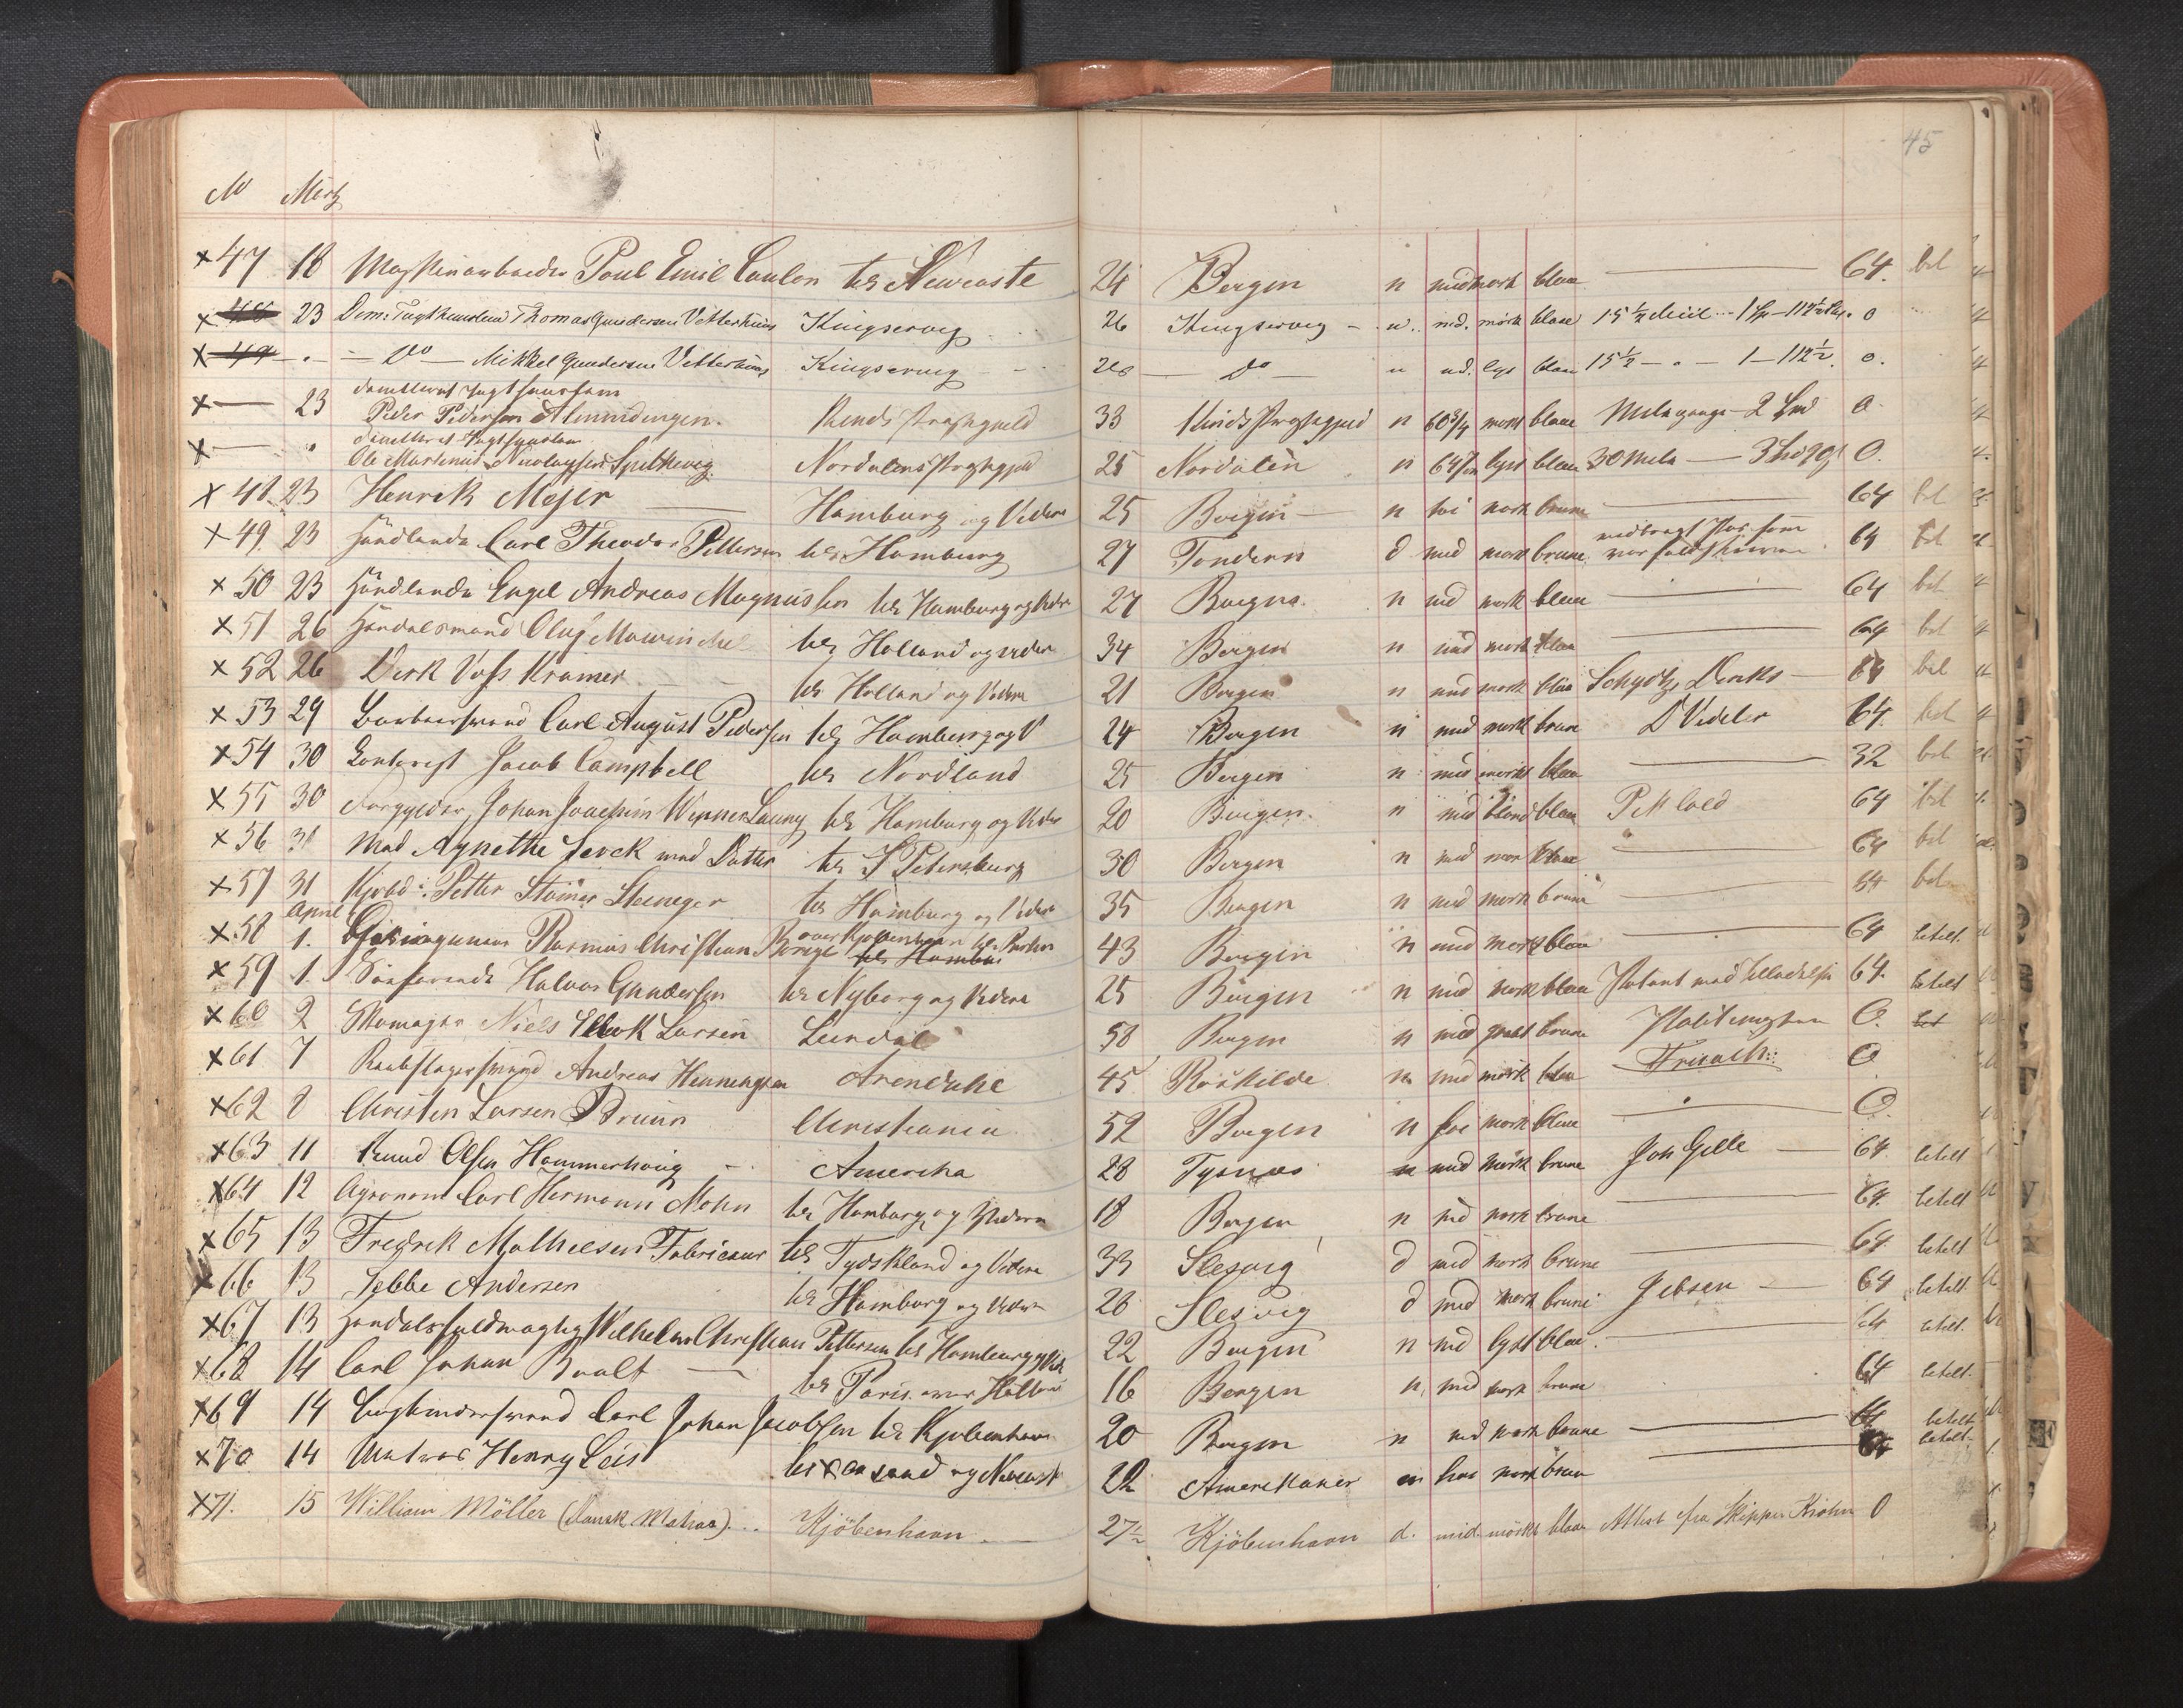 45
No Martz
×47 18 Maskinarbeider Poul Emil Coulon til Newcaste 24 Bergen n mid mork blaa — 64. bet
×48 23 Døm: Tugthuuslem Thomas Gundersen Vetterhuus Kingservig 26 Kingservig n. md. mörk blaae 15½ Miil 1 Sp 112½ 0
×49 " Do Mikkel Gundersen Vetterhuus Kingservig 26 Do n md. lys blaa 15½ " 1 — 112½ 0.
×— 23 demitteret Tugthuusfam
Peder Pedersen Almindingen. Kinds Præstegjeld 33 Kinds Præstegjeld n 60¾ mork blaae 2 0.
×— " demitteret Tugthuusfam
Ole Martinus Nicolaysen Spilkevig Nordalens Præstegjeld 25 Nordalen n lyst blaa 30 Mile — 0.
×48 23 Henrik Mejer — Hamburg og Videre 25 Bergen n høi mork brune — 64 bet
×49. 23 Handlende Carl Theodor Pettersen til Hamburg 27 Tondern d mid mork brune medbragt Pas som 64 bet
×50 23 Handlende Engel Andreas Magnussen til Hamburg og Videre 27 Bergen n md mork blaa — 64 bet
×51 26 Handelsmand Oluf Mowinckel til Holland og videre 34 Bergen n mid mork blaa — 64 bet
×52 26 Dirk Voss Kramer til Holland og Videre 21 Bergen n mid mork blaa Schydtz, Dirks — 64 bet
×53 29 Barbeersvend Carl August Pedersen til Hamburg og V 24 Bergen n mid mork brune D Vedeler 64. bet
×54 30 Contorist Jacob Campbell til Nordland 25 Bergen n mid morkt blaa — 32 bet
×55 30 Forgylder Johan Joachim Werner Laung til Hamburg og Videre 20 Bergen n mid blond blaa 64 bet
×56 31 Mad Agnethe Jerck med Datter til S Petersburg 30 Bergen n mid mor blaae — 64 bet
×57 31 Kjøbd: Petter Stoiner Steneger til Hamburg og Videre 35 Bergen n mid mork brune — 64 bet
April
×58 1. Rasmus Christian over Kjøbenhavn til Hambu 43 Bergen n mid mork blaa — 64 betalt.
×59 1. Søefarende Halvor Gundersen til Nyborg og Videre 25 Bergen n mid mork blaa 64. betalt
×60 2 Skomager Niels Larsen Leerdal 58 Bergen n mid graat brune O. bet
×61 7 Reebslagersvend Andreas Henningsen Arendahl 45 Roskilde n mid mörk blaa O
×62 8 Christen Larsen Bruun Christiania 52 Bergen n høi mork blaae — O.
×63 11 Knud Olsen Hammerhoug Amerika 28 Tysnæs n mid mörk brune Joh Gelle — 64. betalt
×64 12 Agronom Carl Hermann Mohn til Hamburg og Videre 18 Bergen n mid mork brune — 64. betalt
×65 13 Fredrik Mathiesen Fabricius til Tydskland og Videre 33 Slesvig d mid mork brune — 64. betalt
×66 13 Jebbe Andersen til Hamburg og Videre 26 Slesvig d mid mork brune Jebsen — 64 betalt.
×67 13 Handelsfuldmægtig Wilhelm Christian Pettersen til Hamburg og Vid 22 Bergen n mid lyst blaa. — 64 betalt.
×68 14 Carl Johan — til Paris over 16 Bergen n mid mork brune 64 betalt.
×69 14 Bogbindersvend Carl Johan Jacobsen til Kjøbenhavn 20 Bergen n md mork brune — 64 betalt
×70 14 Matros Henry Leis og Newcast 22 Amerikaner mork brun — 64 betalt.
×71. 15 William Möller (Dansk Matros) Kjöbenhavn 27½ Kjöbenhavn d. mid mörkt blaae Attest fra Skipper Krohn 0